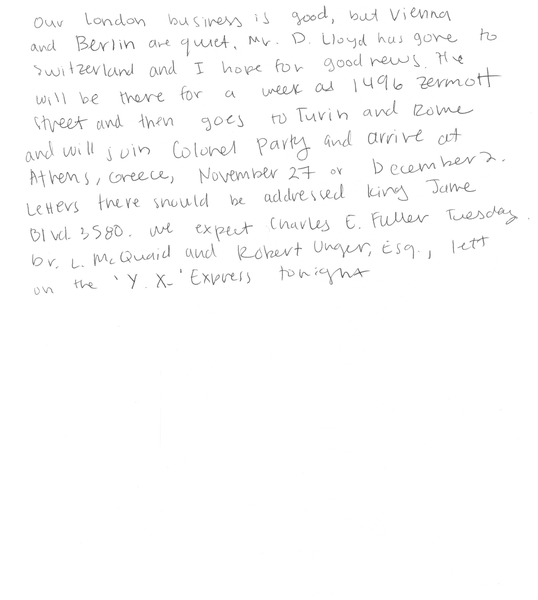 Our London business is good, but Vienna
and Berlin are quiet. Mr. D. Lloyd has gone to
Switzerland and I hope for good news. He
will be there for a week at 1496 Zermott
Street and then goes to Turin and Rome
and will join Colonel Party and arrive at
Athens, Greece, November 27 or December 2.
Letters there should be addressed King Jame
Blvd. 3580. We expect Charles E. Fuller Tuesday.
Dr. L. McQuaid and Robert Unger, Esq., left
on the 'Y. X.' Express tonight